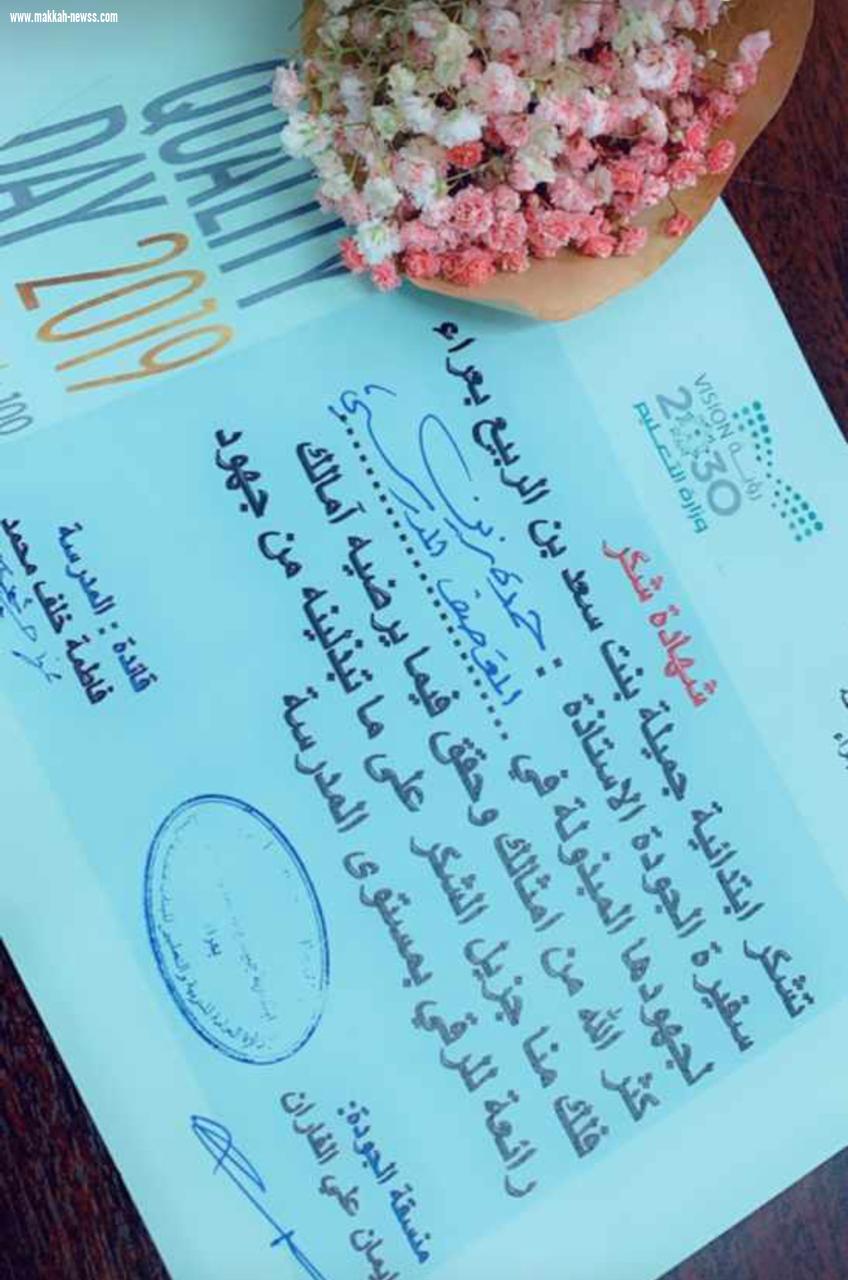 www.makkah-newss.com
QUALITY
DAY 2019
100
VISION رؤيـــة
2030
وزارة التعليم
شهادة شكر
تشكر ابتدائية جميلة بنت سعد بن الربيع بعراء
سفيرة الجودة الاستاذة :
لجهودها المبذولة في
كثر الله من امثالك وحقق فيما يرضيه آمالك
فلك منا جزيل الشكر على ما تبذلينه من جهود
رائعة للرقي بمستوى المدرسة
منسقة الجودة:
إيمان علي القاران
قائدة : المدرسة
فاطمة خلف محمد